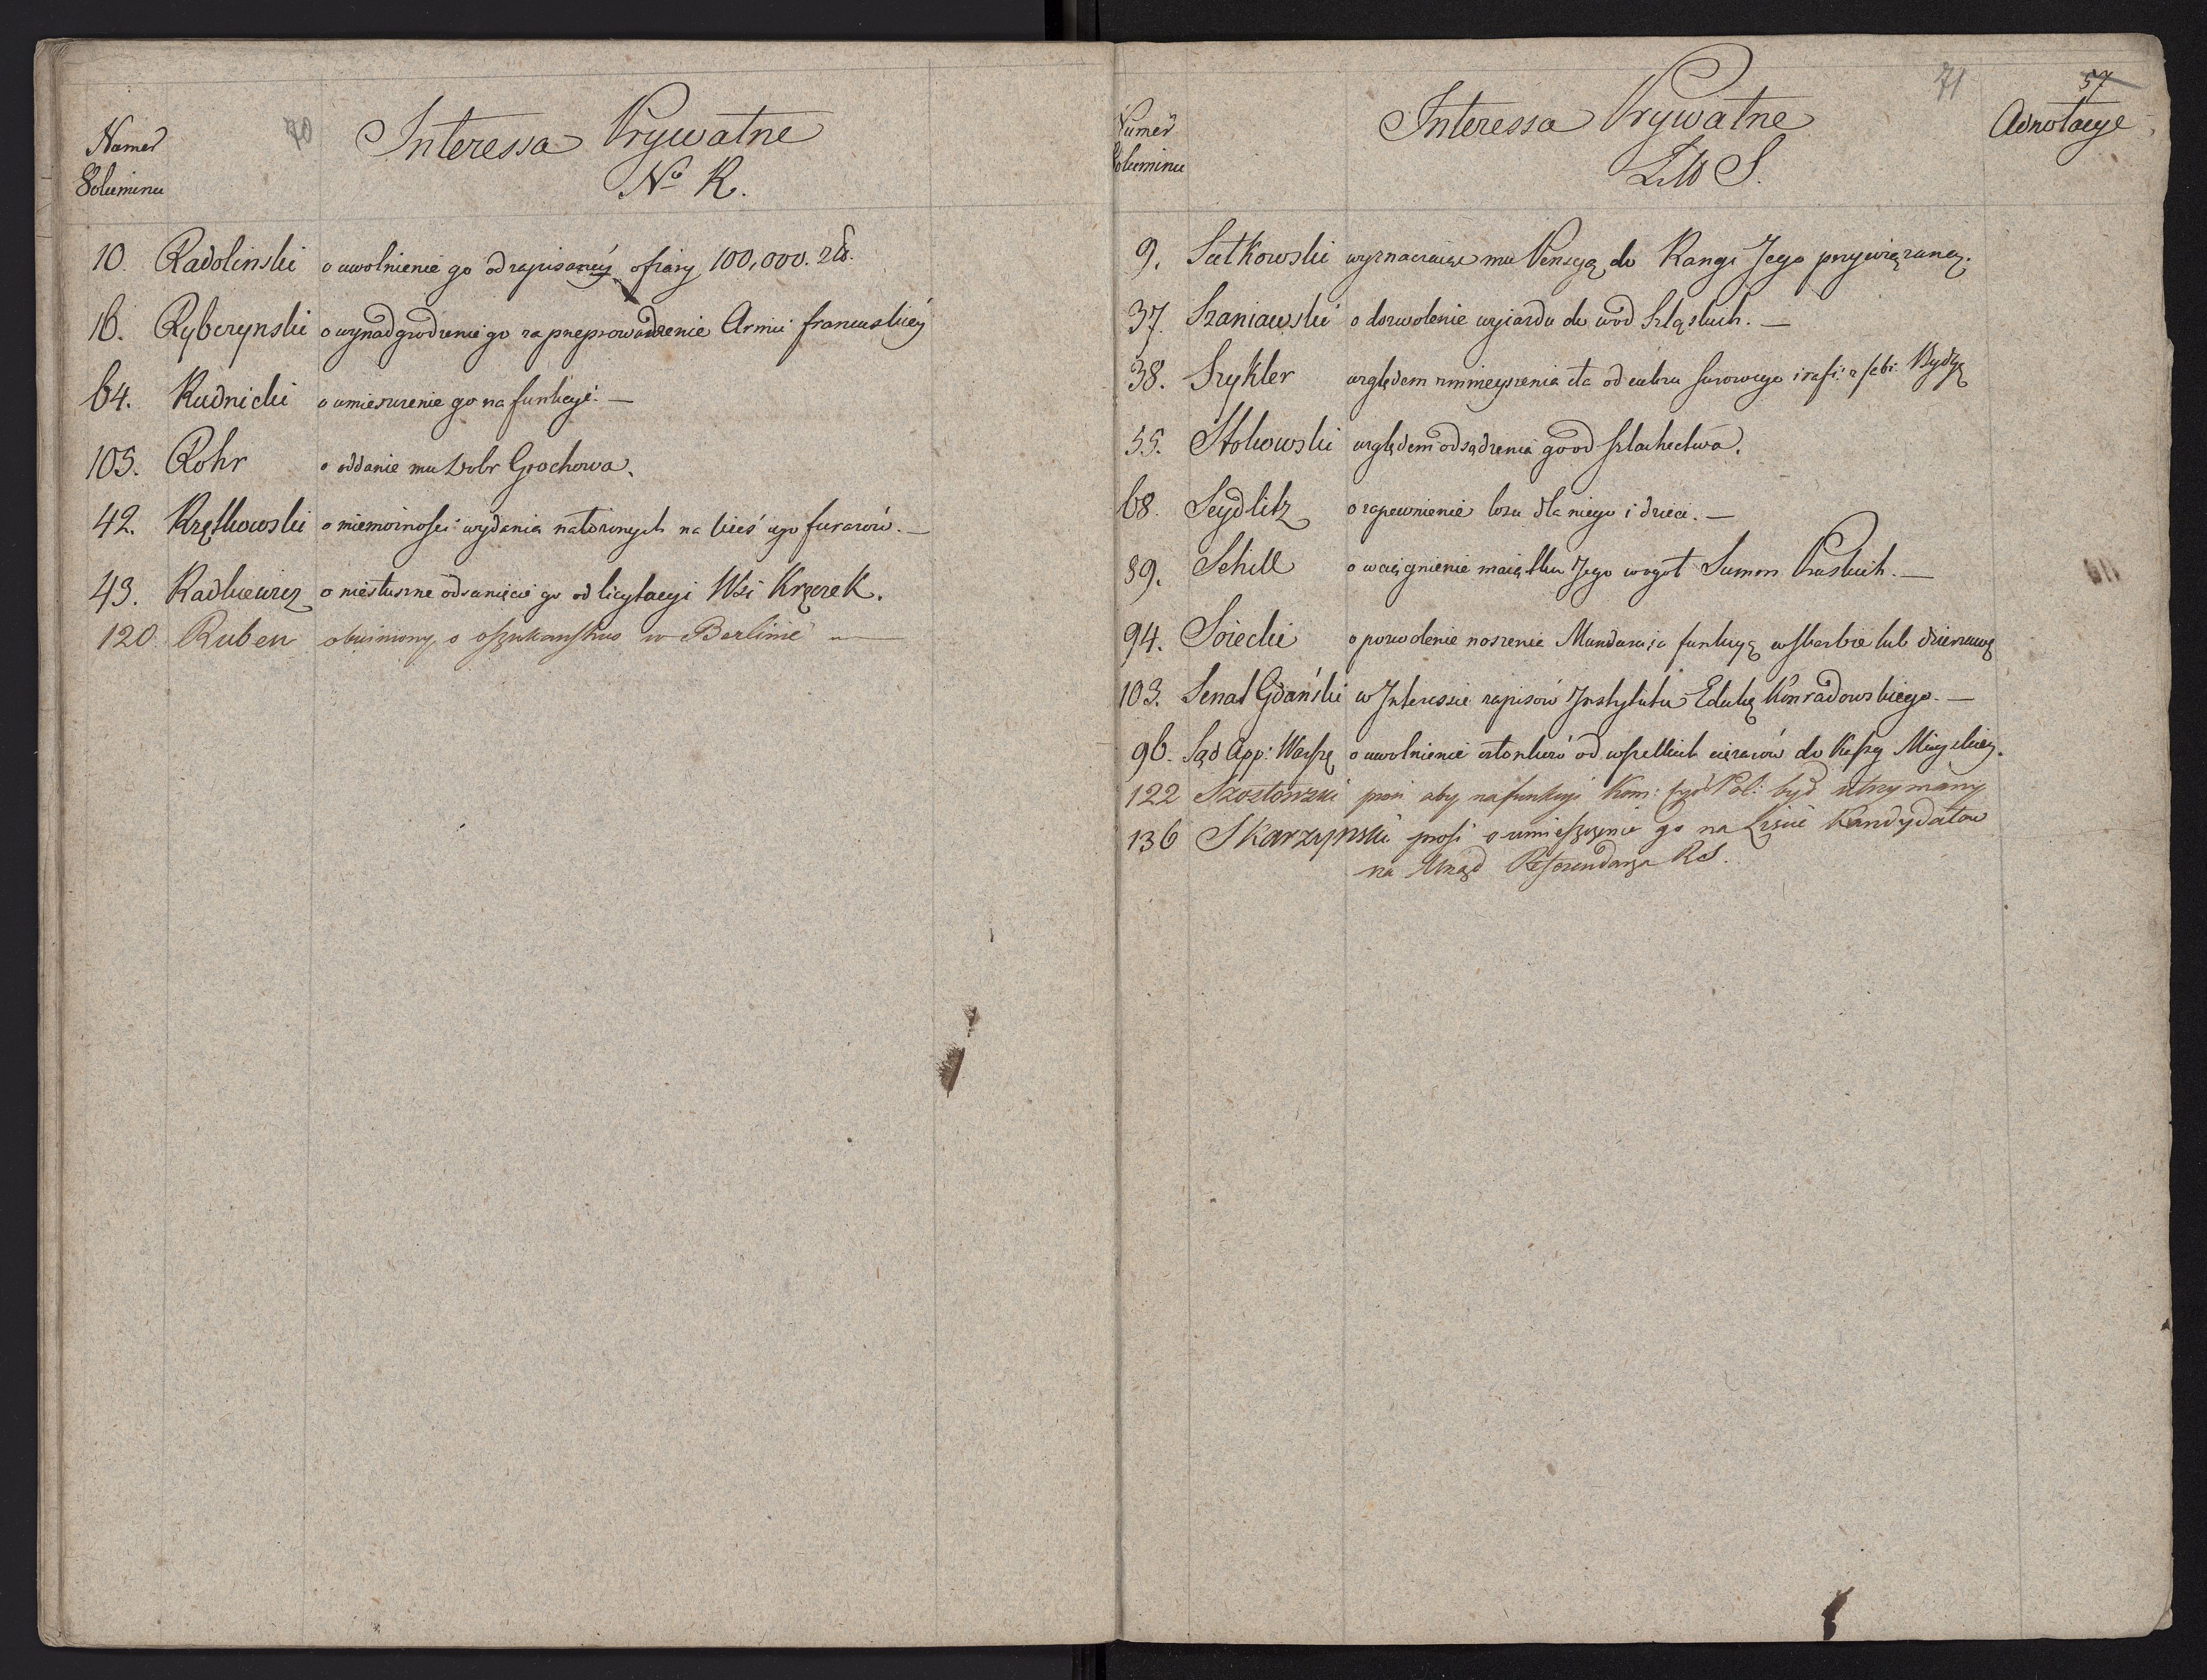 70
Numer
Voluminu
Interessa Prywatne
No R.
10. Radolinski o uwolnienie go od zapisanéy ofiary 100,000. zł.
16. Rybczynski o wynadgrodzenie go za przeprowadzenie Armii francuskiéy
64. Rudnicki o umieszczenie go na funkcyi. —
105. Rohr o oddanie mu Dobr Grochowa.
42. o niemożności wydania nałożonych na furazów. —
43. Radkiewicz o niesłuszne odsunięcie go od licytacyi Wsi Krzczek.
120 Ruben obwiniony o oszukanstwo w Berlinie —
71
57
Numer
Voluminu
Interessa Prywatne
Litt S.
Adnotacye
9. Sułkowski wyznaczaiące mu Pensyą do Rangi Jego przywiązaną.
37. Szaniawski o dozwolenie wyiazdu do wod Szląskich. —
38. Szykler względem zmnieyszenia cła od cukru surowego i rafi: z fabr: Bydgę
55. Stokowski względem odsądzenia go od szlachectwa.
68. Seydlitz o zapewnienie losu dla niego i dzieci. —
89. Schill o wciągnienie maiątku Jego w ogół Summ Pruskich. —
94. Soiecki o pozwolenie noszenie Munduru i o funkcyę w skarbie lub dzierzawę
103. Senat Gdański w Interessie zapisów Instytutu Eduką Konradowskiego. —
96. Sąd App: Warszą o uwolnienie członków od wszelkich ciężarów do Kassy Mieyskiey.
122 prosi aby na funkcyi Kom: Pol: był utrzymany
136 Skarzynski prosi o umieszczenie go na Liscie Kandydatow
na Urząd Referendarza RS.